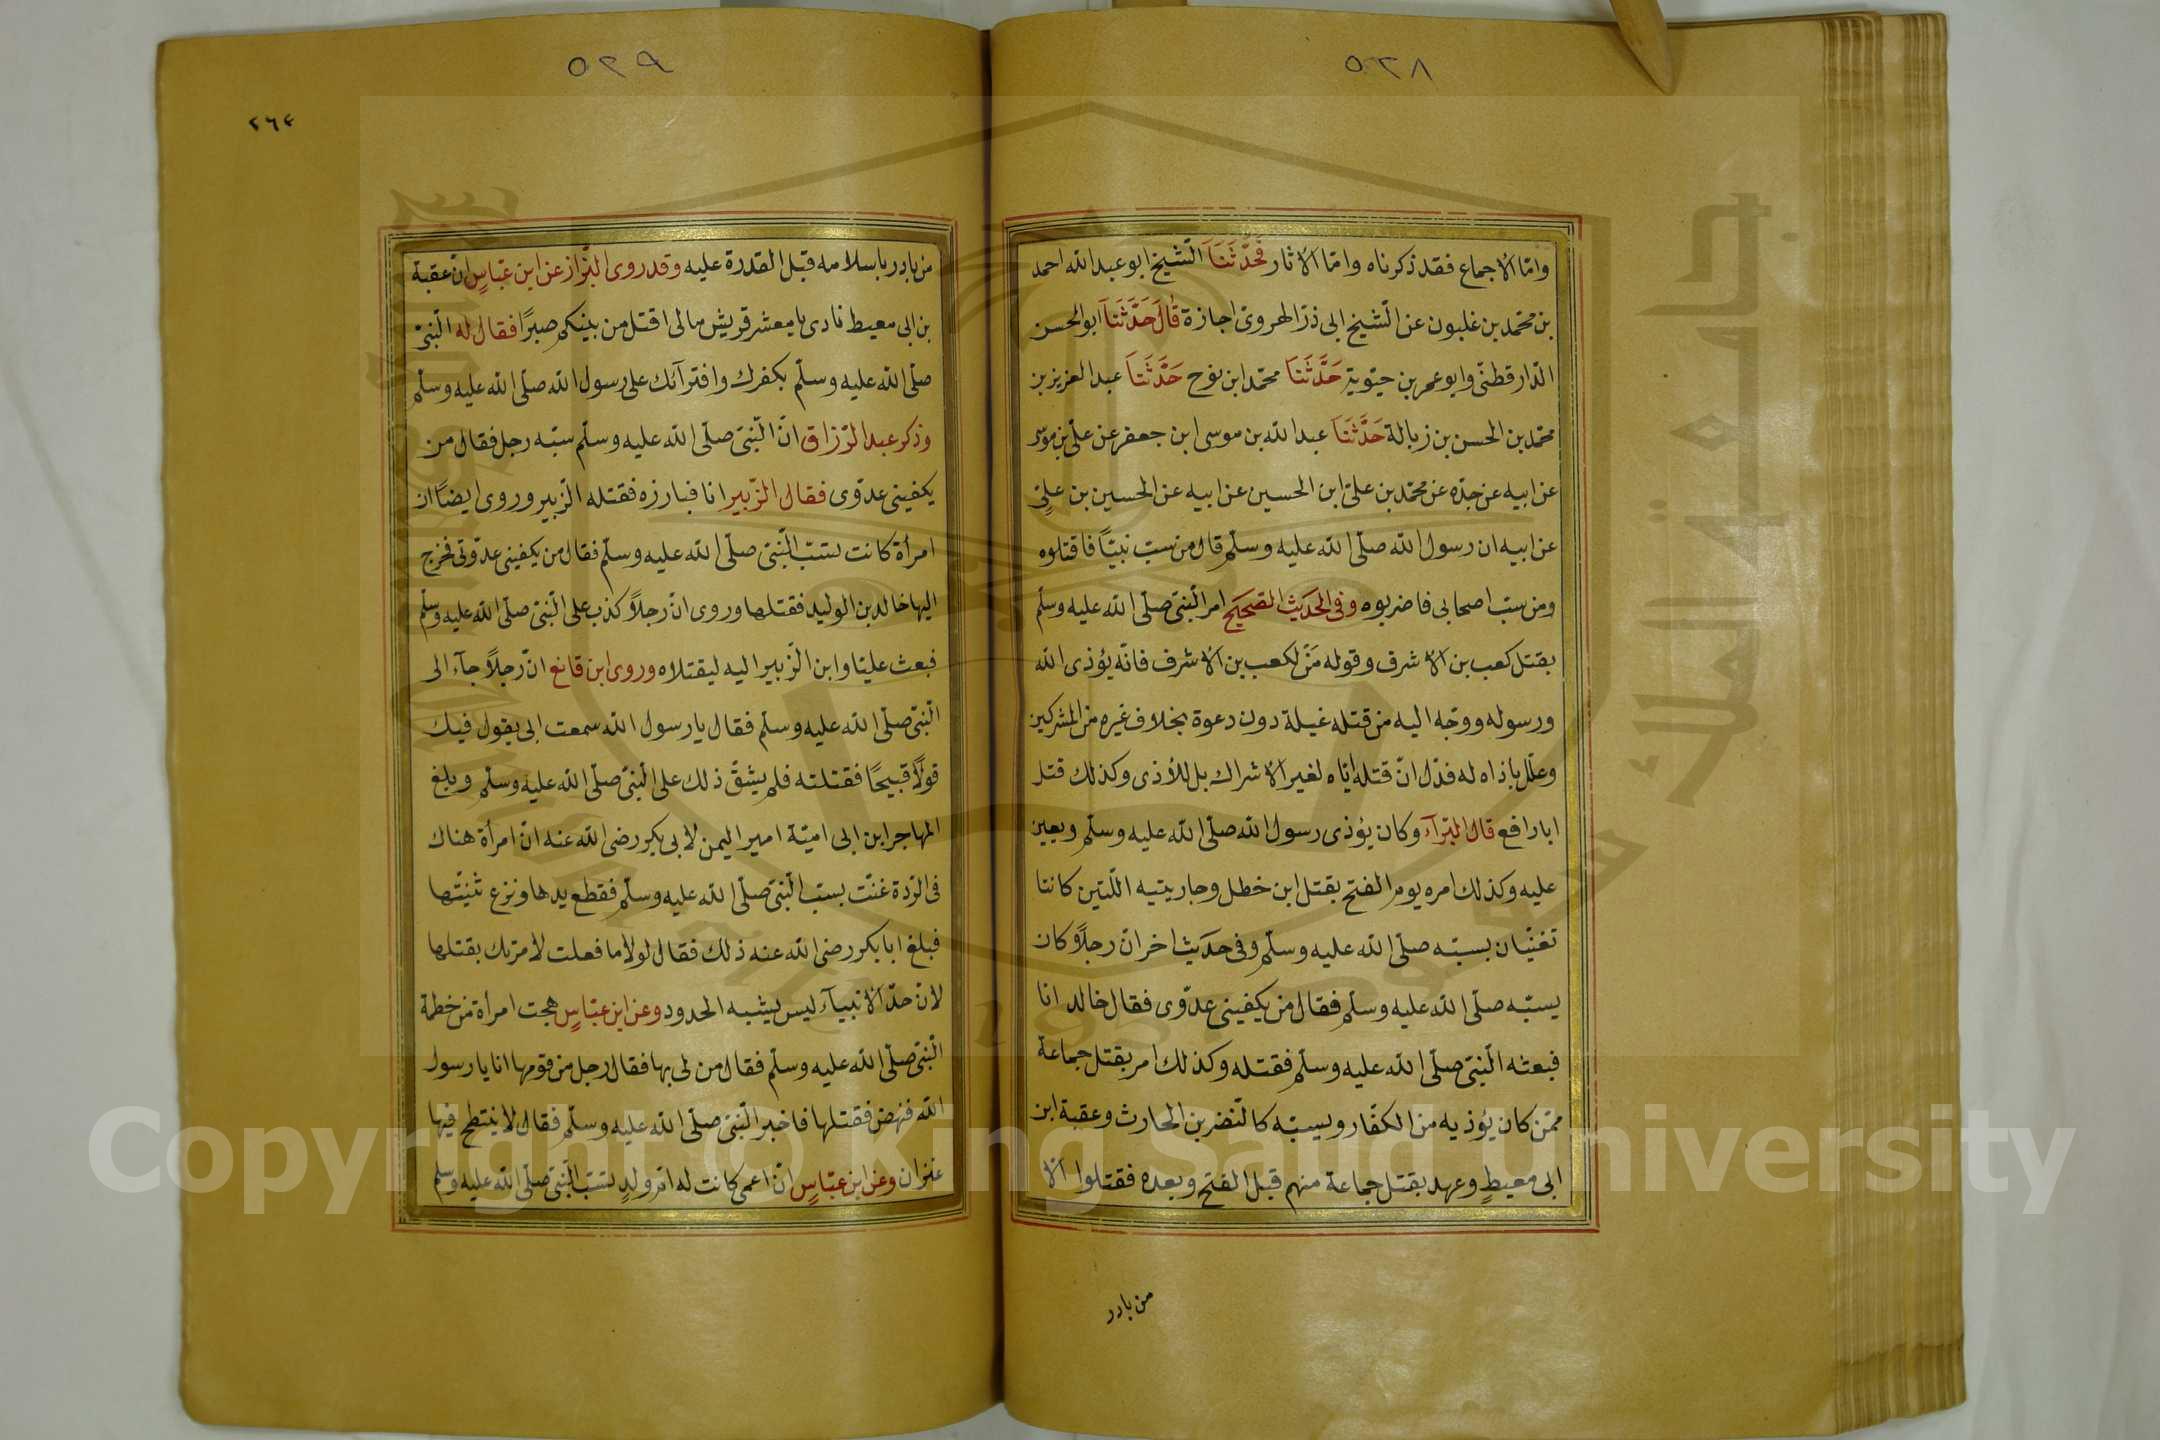 ٥٢٨
وامّا الاجماع فقد ذكرناه وامّا الاثار فَحَدَّثَنَا الشيخ ابو عبد الله احمد
بن محمّد بن غلبون عن الشيخ ابى ذرّ الهروىّ اجازة قَالَ حَدَّثَنَا ابو الحسن
الدّارقطنىّ وابو عمر بن حيّوية حَدَّثَنَا محمّد ابن نوح حَدَّثَنَا عبد العزيز بن
محمّد بن الحسن بن زبالة حَدَّثَنَا عبد الله بن موسى ابن جعفر عن علىّ بن موسى
عن ابيه عن جدّه عن محمّد بن علىّ ابن الحسين عن ابيه عن الحسين بن علىٍّ
عن ابيه ان رسول الله صلّى الله عليه وسلّم قال من سبّ نبيّاً فاقتلوه
ومن سبّ اصحابى فاضربوه وفى الحَدَيث الصَحيَح امر النّبىّ صلّى الله عليه وسلّم
بقتل كعب بن الاشرف وقوله مَنْ لكعب بن الاشرف فانّه يؤذى الله
ورسوله ووجّه اليه من قتله غيلة دون دعوة بخلاف غيره من المشركين
وعلّل باذاه له فدّل انّ قتله ايّاه لغير الاشراك بل للأذى وكذلك قتل
ابا رافع قال البرّآء وكان يؤذى رسول الله صلّى الله عليه وسلّم ويعين
عليه وكذلك امره يوم الفتح بقتل ابن خطل وجاريتيه اللّتين كانتا
تغنيّان بسبّه صلّى الله عليه وسلّم وفى حدَيث اخر انّ رجلاً كان
يسبّه صلّى الله عليه وسلّم فقال من يكفينى عدوّى فقال خالد انا
فبعثه النّبىّ صلّى الله عليه وسلّم فقتله وكذلك امر بقتل جماعة
ممّن كان يؤذيه من الكفّار ويسبّه كالنّضر بن الحارث وعقبة ابن
ابى معيطٍ وعهد بقتل جماعة منهم قبل الفتح وبعده فقتلوا الاّ
من بادر
٥٢٩
٢٦٤
من بادر باسلامه قبل القدرة عليه وقد روى البزّاز عن ابن عبّاسٍ انّ عقبة
بن ابى معيط نادى يا معشر قريش مالى اقتل من بينكم صبرًا فقال له النّبىّ
صلّى الله عليه وسلّم بكفرك وافترآئك على رسول الله صلّى الله عليه وسلّم
وذكر عبد الرّزاق انّ النّبىّ صلّى الله عليه وسلّم سبّه رجل فقال من
يكفينى عدوّى فقال الزّبير انا فبارزه فقتله الزّبير وروى ايضاً ان
امرأة كانت تسبّ النّبىّ صلّى الله عليه وسلّم فقال من يكفينى عدوّتى فخرج
اليها خالد بن الوليد فقتلها وروى انّ رجلاً كذب على النّبىّ صلّى الله عليه وسلّم
فبعث عليّا وابن الزّبير اليه ليقتلاه وروى ابن قانع انّ رجلاً جآء الى
النّبىّ صلّى الله عليه وسلّم فقال يا رسول الله سمعت ابى يقول فيك
قولاً قبيحًا فقتلته فلم يشقّ ذلك على النّبىّ صلّى الله عليه وسلّم وبلغ
المهاجر ابن ابى اميّة امير اليمن لأبى بكر رضى الله عنه انّ امرأة هناك
فى الرّدة غنّت بسبّ النّبىّ صلّى الله عليه وسلّم فقطع يدها ونزع ثنيّتها
فبلغ ابا بكر رضى الله عنه ذلك فقال لولا ما فعلت لأمرتك بقتلها
لانّ حدّ الانبيآء ليس يشبه الحدود وعن ابن عبّاسٍ هجت امرأة من خطمة
النّبىّ صلّى الله عليه وسلّم فقال من لى بها فقال رجل من قومها انا يا رسول
الله فنهض فقتلها فاخبر النّبىّ صلّى الله عليه وسلّم فقال لا ينتطح فيها
عنزان وعن ابن عبّاسٍ انّ اعمى كانت له امّ ولدٍ تسبّ النّبىّ صلّى الله عليه وسلّم
Copyright © King Saud University